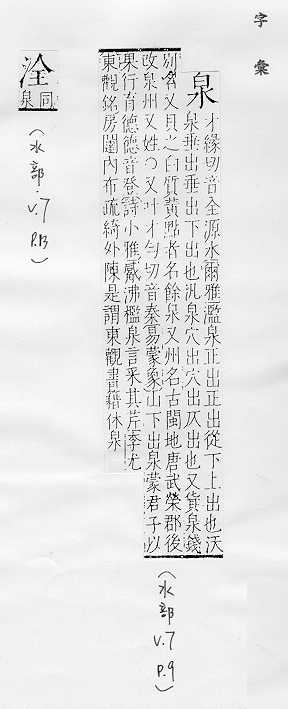 字彙
泉
才緣切音全源水爾雅濫泉正出正出從下上出也沃
泉垂出垂出下出也氿泉穴出穴出仄出也又貨泉錢
別名又貝之白質黃點者名餘泉又州名古閩地唐武榮郡後
改泉州又姓○又叶才勻切音秦易蒙象山下出泉蒙君子以
果行育德德音登詩小雅觱沸檻泉言采其芹李尤
東觀銘房闥內布疏綺外陳是謂東觀書籍休泉
(水部 V.7 P.9)
洤
同泉
(水部 V.7 P.13)